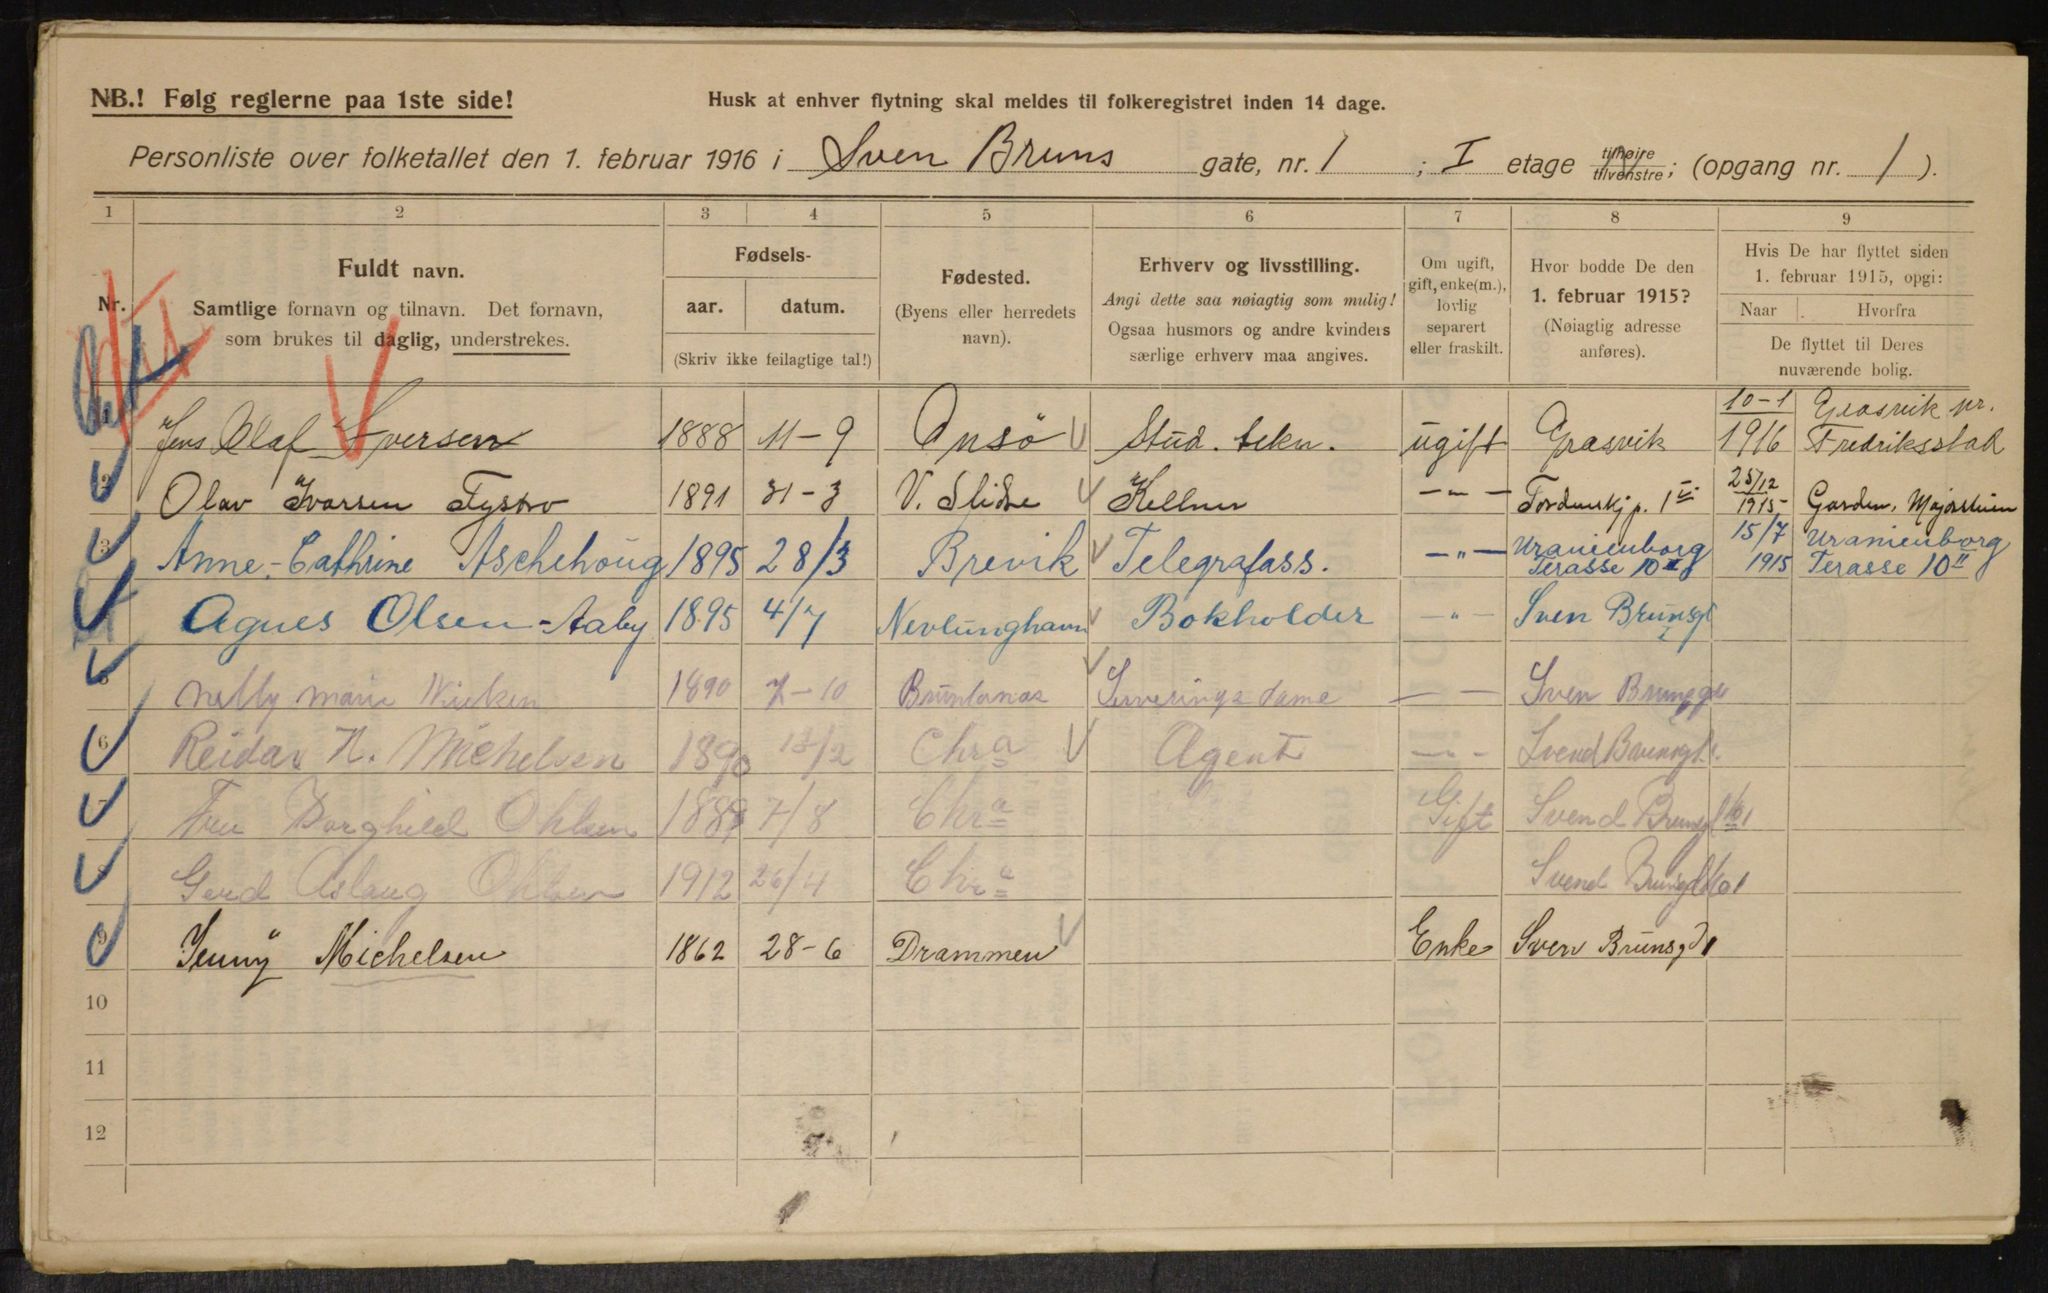 NB.! Følg reglerne paa 1ste side!
Husk at enhver flytning skal meldes til folkeregistret inden 14 dage.
Personliste over folketallet den 1. februar 1916 i Sven Bruns gate, nr. 1 ; I etage tilhøire tilvenstre; (opgang nr. 1 ).
1 2 3 4 5 6 7 8 9
Nr.
Fuldt navn.
Samtlige fornavn og tilnavn. Det fornavn,
som brukes til daglig, understrekes.
Fødsels-
aar. datum.
(Skriv ikke feilagtige tal!)
Fødested.
(Byens eller herredets
navn).
Erhverv og livsstilling.
Angi dette saa nøiagtig som mulig!
Ogsaa husmors og andre kvinders
særlige erhverv maa angives.
Om ugift,
gift, enke(m.),
lovlig
separert
eller fraskilt.
Hvor bodde De den
1. februar 1915?
(Nøiagtig adresse
anføres).
Hvis De har flyttet siden
1. februar 1915, opgi:
Naar Hvorfra
De flyttet til Deres
nuværende bolig.
Jens Olaf Iversen 1888 11-9 Onsö Stud. tekn. ugift Grasvik 10-1 1916 Grasvik pr. Fredriksstad
2 Olav Ivarsen 1891 31-3 V. Slidre Kellner -"- Tordenskj. p. 1 25/12 1915 Garden. Majorstuen
3 Anne-Cathrine Aschehoug 1895 28/3 Brevik Telegrafass. -"- Uranienborg Terasse 10 II 15/7 1915 Uranienborg Terasse 10 II
Agnes Olsen-Aaby 1895 4/7 Nevlunghavn Bokholder -"- Sven Brunsgt I
Nelly Marie 1890 7-10 Serveringsdame - - Sven Brunsgt
6 Reidar N. Michelsen 1890 Chr a Agent -"- Svend Brunsgt.
7 Fru Borghild Ohlsen 7/8 Chr a Gift Svend Brunsgt
Gerd Aslaug Ohlsen 1912 26/4 Chr a Svend Brunsgt
9 Jenny Michelsen 1862 28-6 Drammen Enke Sven Brunsgd 1
10
11
12